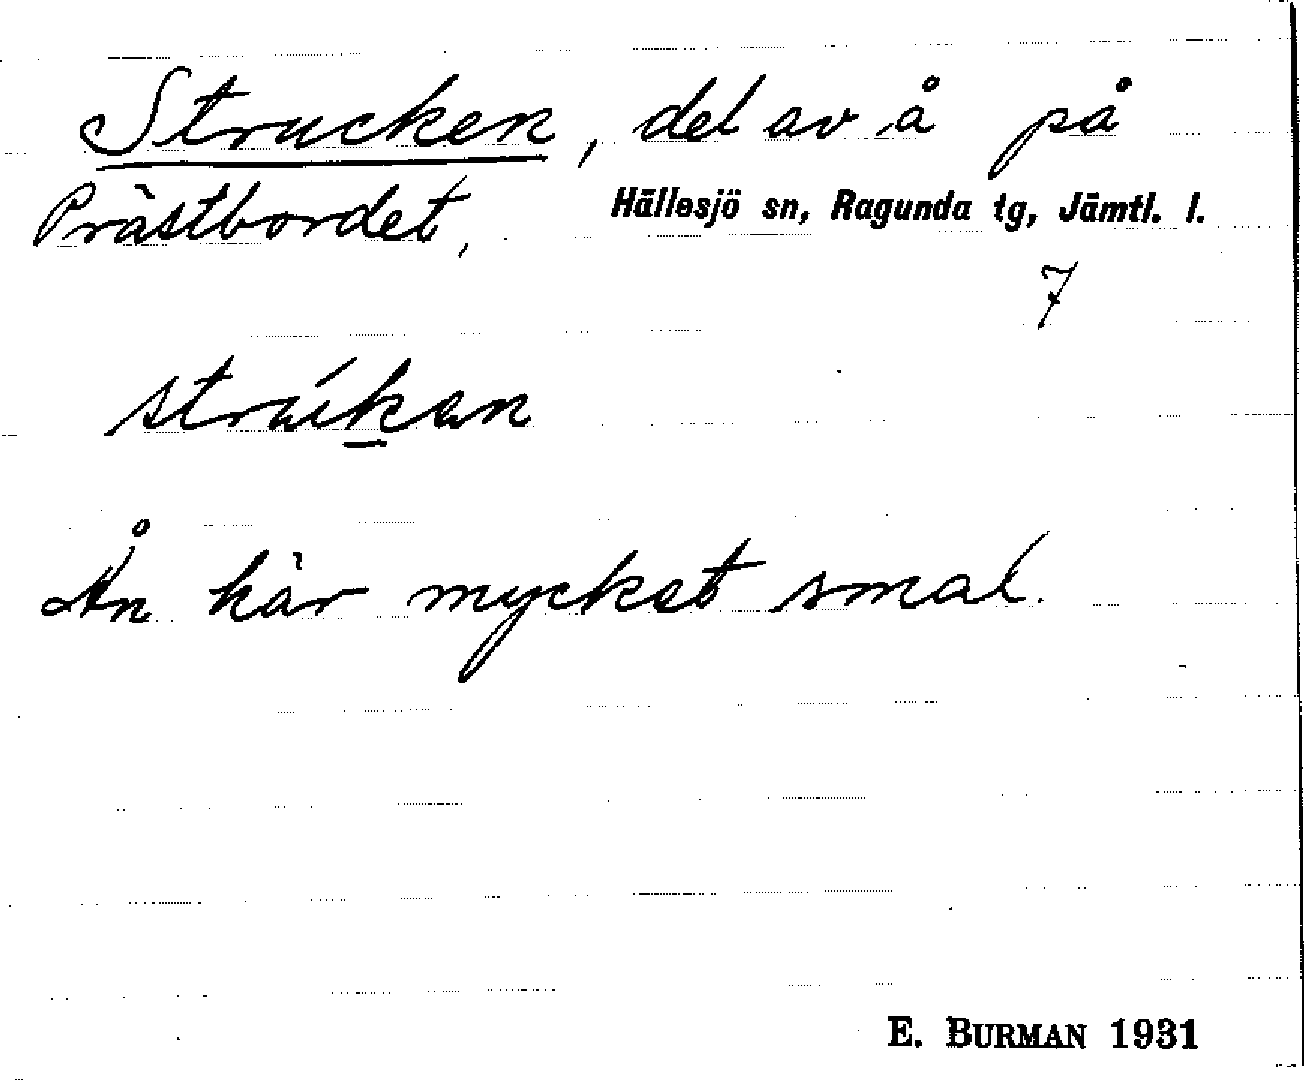 Strucken, del av å på
Prästbordet, Hällesjö sn, Ragunda tg, Jämtl. l.
7
strúkan
Ån här mycket smal.
E. BURMAN 1931